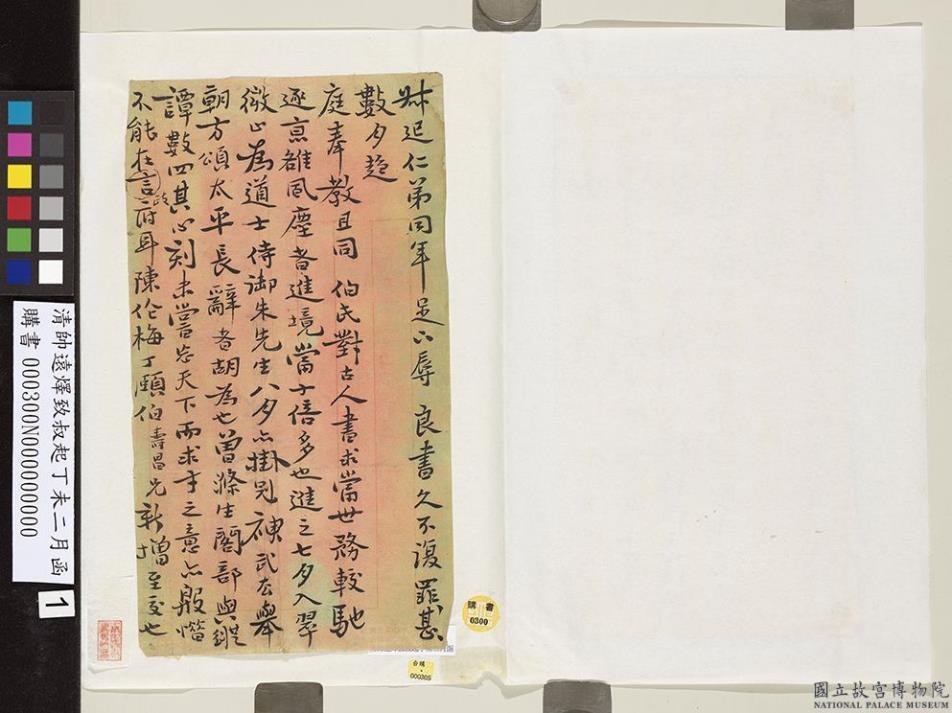 尗迟仁弟同年足下辱 良書久不復罪甚
數月趨
庭奉 教且同 伯氏對古人書求當世務較馳
逐京雒風塵者進境當十倍多也進之七夕入翠
微山為道士侍御朱先生八月亦掛冠 神武去舉
朝方頌太平長辭者胡為也曾滌生閣部與縱
譚數四其心刻未嘗忘天下而求才之意亦殷惜
不能在言府耳陳伯梅丁頤伯壽昌允新增至交也
清帥遠燡致叔起丁未二月函
購書 000300N000000000
1
購書
0300
台購
000305
國立故宮博物院
NATIONAL PALACE MUSEUM